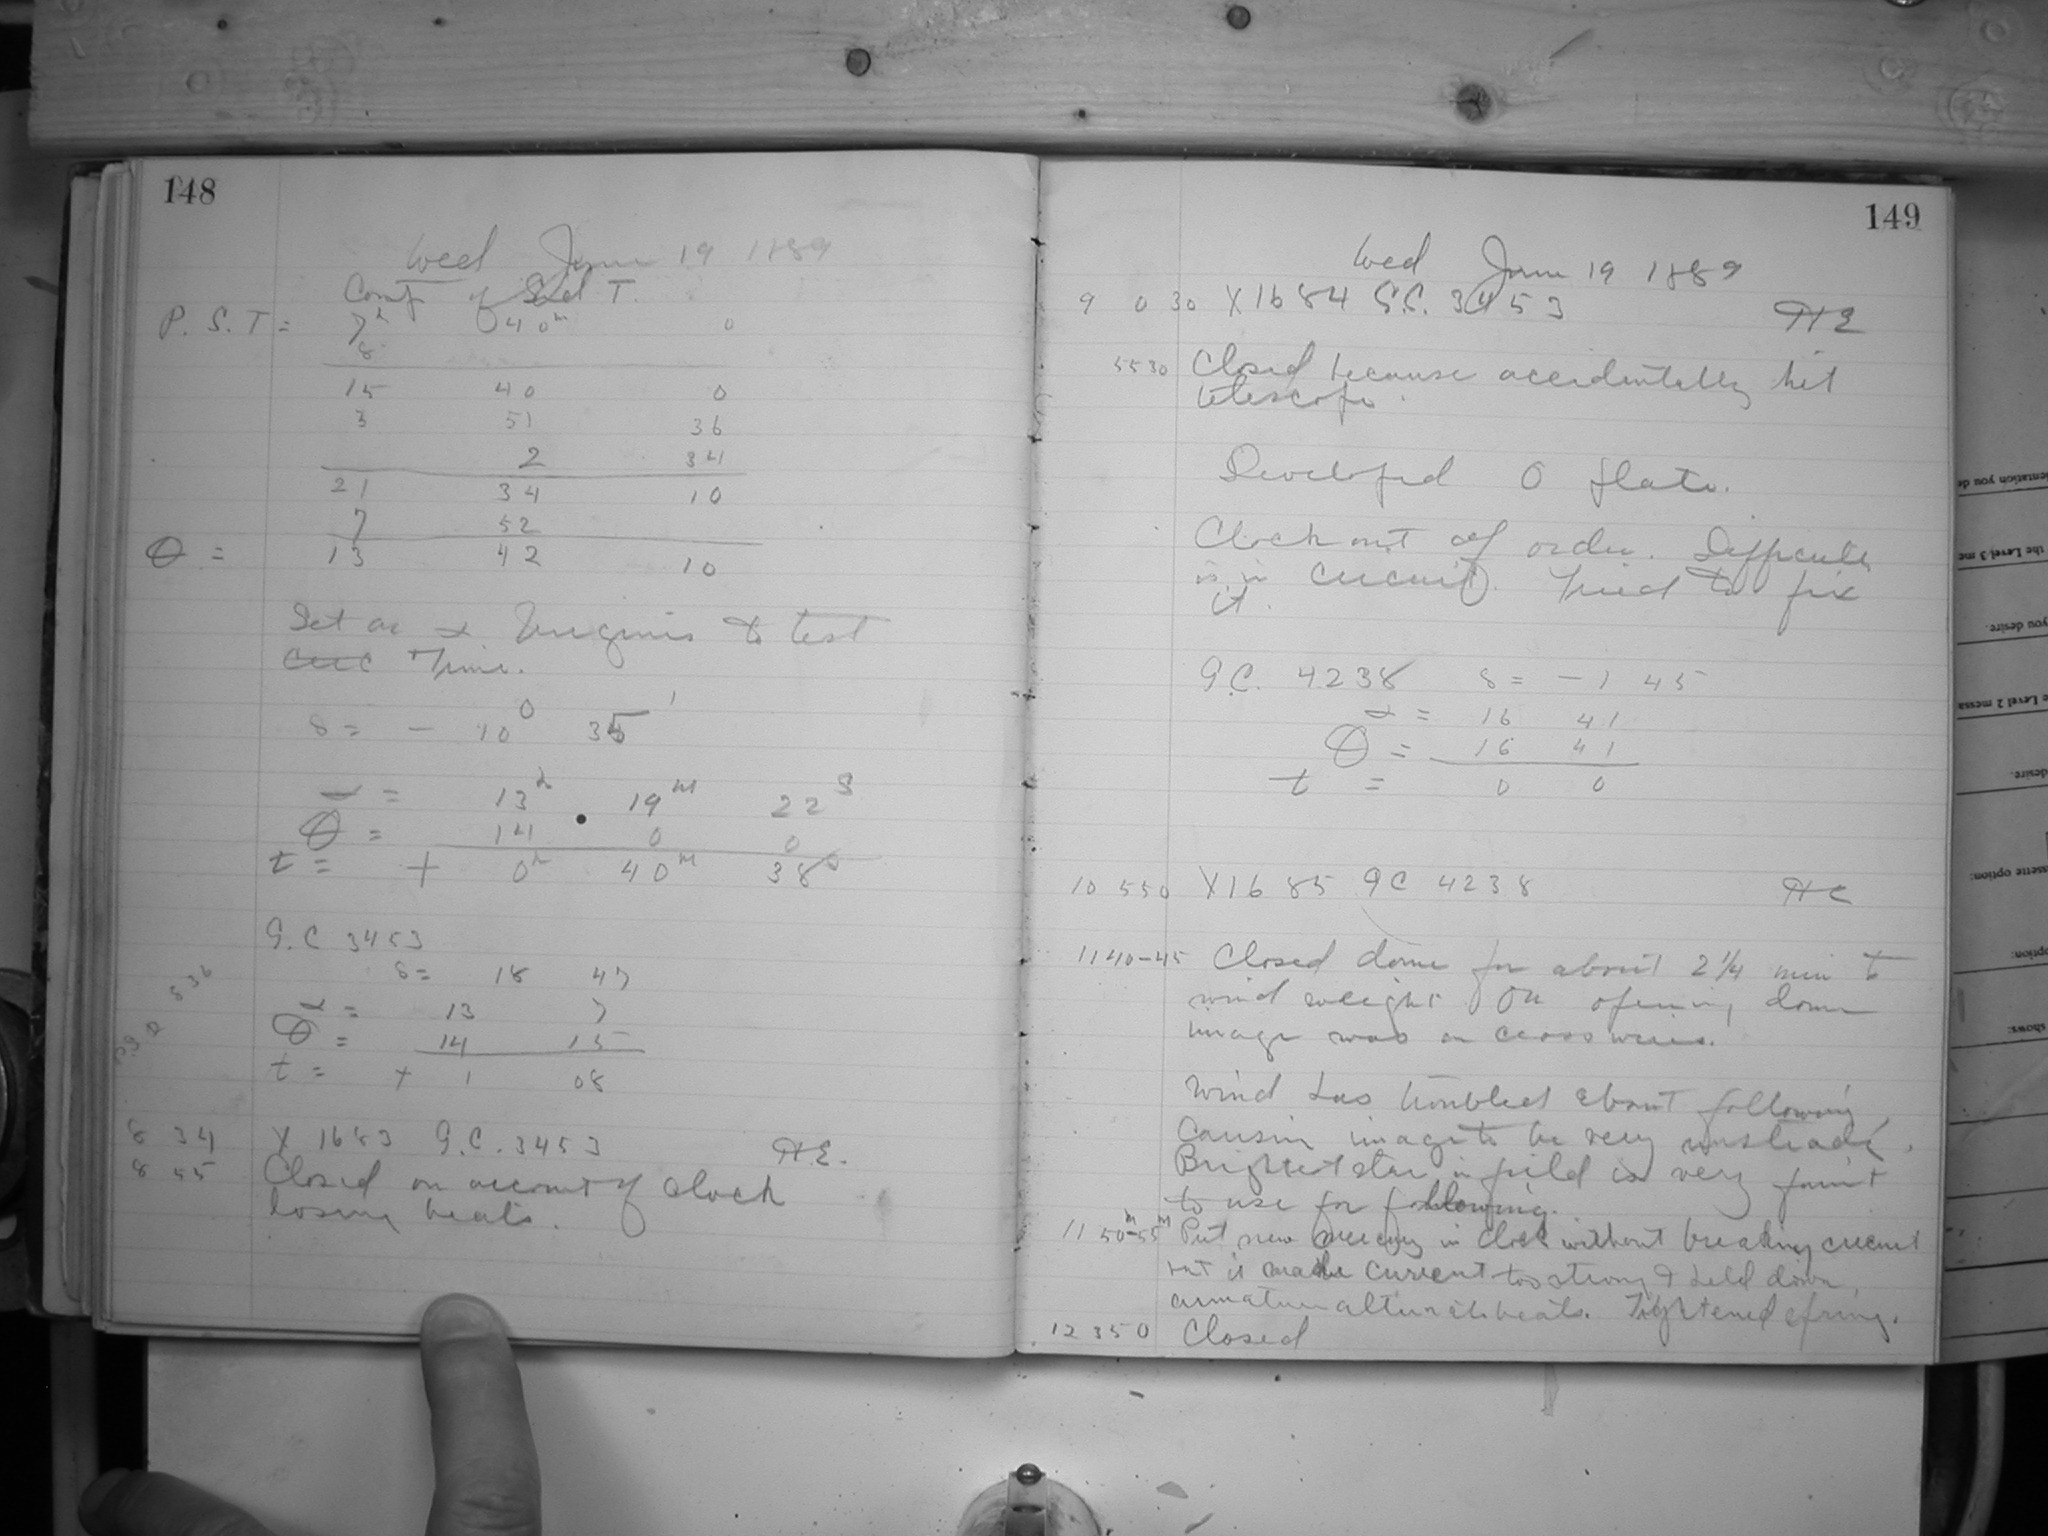 148
Wed June 19 1889
Comp of Sid T.
P. S. T = 7h 40m 0
8
15 40 0
3 51 36
2 34
21 34 10
7 52
θ = 13 42 10
Set on α Virginis to test
time.
δ = - 10° 35'
α = 13h 19m 22s
θ = 14 0 0
t = + 0h 40m 38s
G.C 3453
δ = 18 47
α = 13 7
θ = 14 15
t = + 1 08
8 36
8 34 X 1683 G.C. 3453 H.E.
8 55 Closed on account of clock
losing beats.
149
Wed June 19 1889
9 0 30 X1684 G.C. 3453 HE
55 30 Closed because accidentally hit
telescope.
Developed O plate.
Clock out of order. Difficulty
is in circuit. Tried to fix
it.
G.C. 4238 δ = -1 45
α = 16 41
θ = 16 41
t = 0 0
10 550 X1685 GC 4238
11 40-45 Closed dome for about 2 1/4 min to
wind weight. On opening dome
image was on cross wires.
Wind has troubled about following,
causing image to be very unsteady.
Brightest star in field is very faint
to use for following.
11 50m-55m Put new mercury in clock without breaking circuit
but it made current too strong & held down
armature alternate beats. Tightened spring.
12 350 Closed